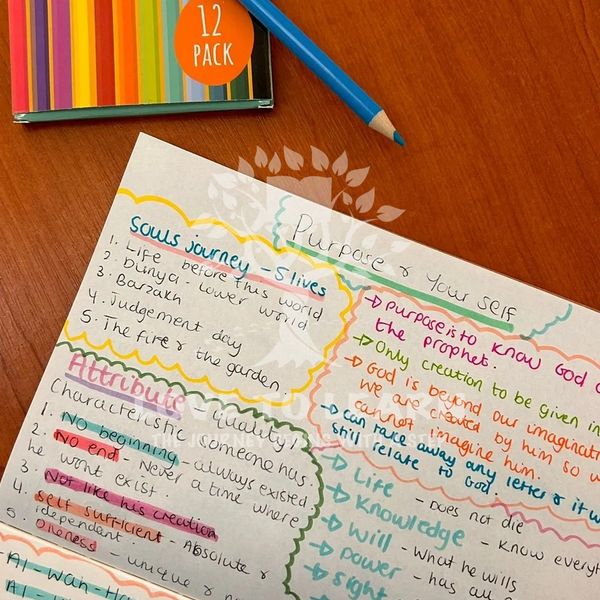 12
PACK
Purpose & Your self
Souls journey - 5 lives
1. Life before this world
2. Dunya - lower world
3. Barzakh
4. Judgement day
5. The fire & the garden.
Attribute - quality /
Characteristic someone has.
1. No beginning - always existed
2. No end - Never a time where
he wont exist.
3. Not like his creation
4. Self sufficient - Absolute &
idependent.
5. Oneness - unique &
Al-Wah
Al-
→ purpose is to know God
the prophet.
→ Only creation to be given
→ God is beyond our
we are created by him so
cannot imagine him.
→ can take away any letter & it
still relate to God.
→ Life - Does not die
→ Knowledge - know
→ Will - What he wills
→ power - has all
→ sight
LOVE TO LEARN
THE JOURNEY BEGINS WITH